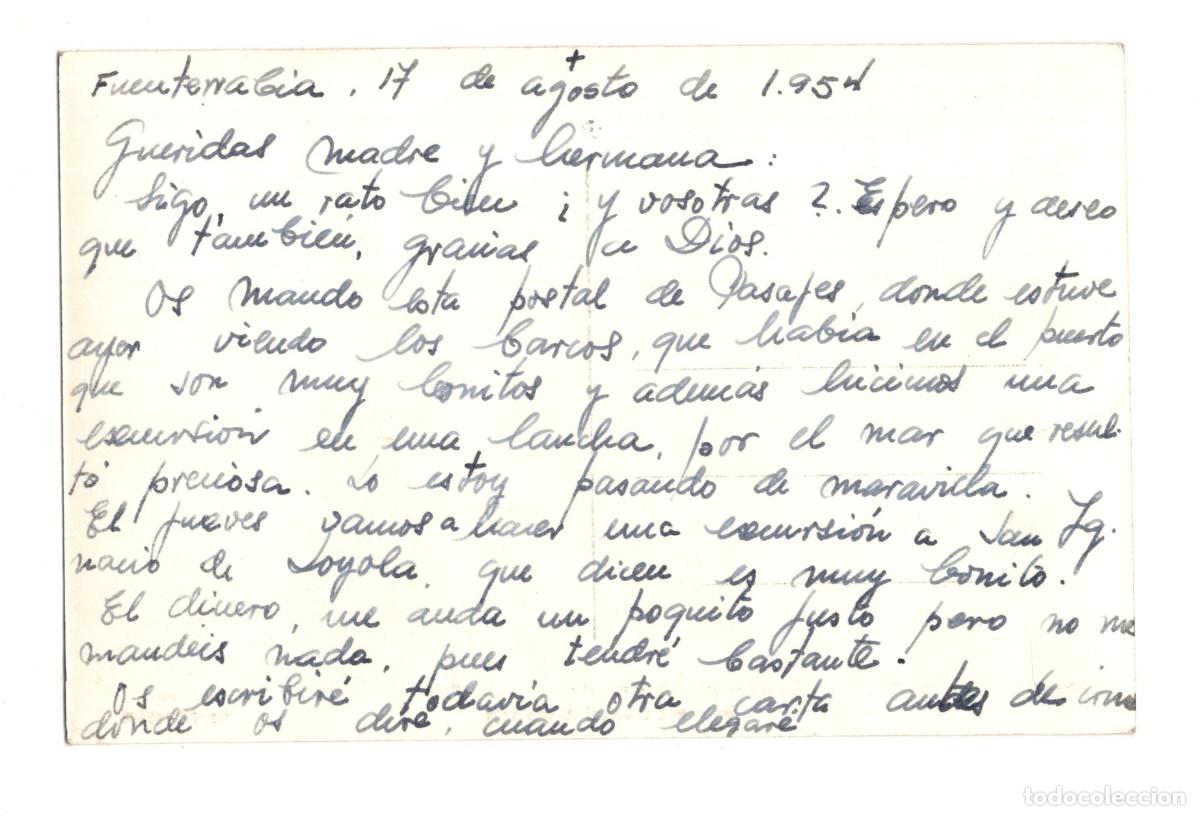 +
Fuenterrabia, 17 de agosto de 1.954
Queridas madre y hermana:
Sigo, un rato bien ¿y vosotras?. Espero y deseo
que también, gracias a Dios.
Os mando esta postal de Pasajes, donde estuve
ayer viendo los barcos, que había en el puerto
que son muy bonitos y además hicimos una
excursión en una lancha, por el mar que resul-
tó preciosa. Lo estoy pasando de maravilla.
El jueves vamos a hacer una excursión a San Ig-
nacio de Loyola, que dicen es muy bonito.
El dinero, me anda un poquito justo pero no me
mandéis nada, pues tendré bastante.
Os escribiré todavía otra carita antes de irme
donde os diré, cuando llegaré
todocoleccion